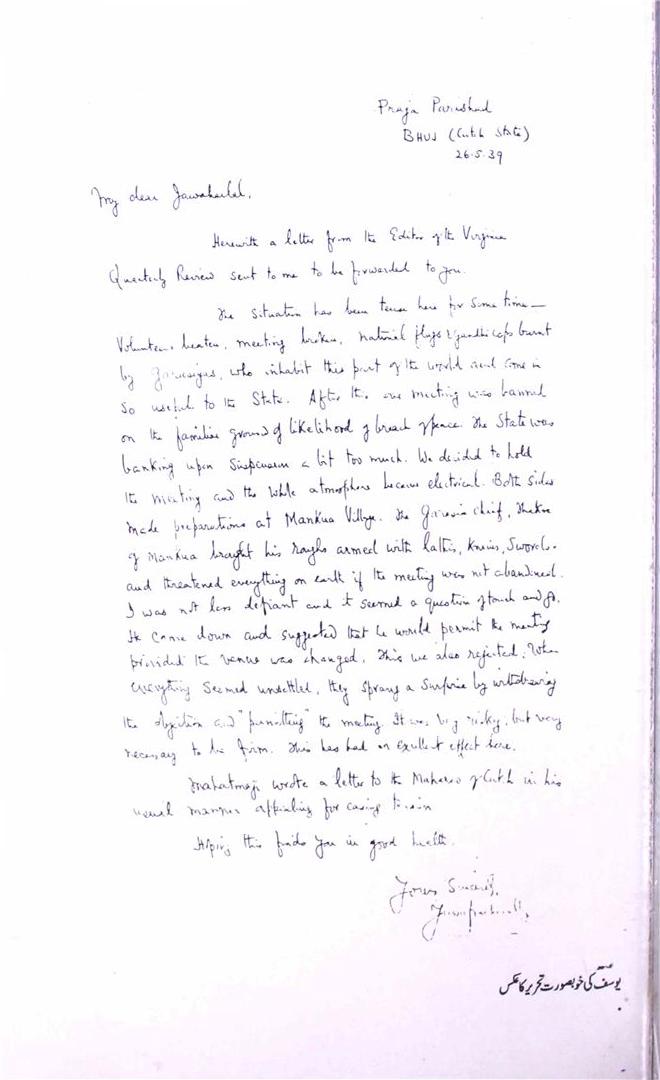 Praja Parishad
BHUJ (Cutch State)
26.5.39
My dear Jawaharlal,
Herewith a letter from the Editor of the Virginia
Quarterly Review sent to me to be forwarded to you.
The situation has been tense here for some time —
Volunteers beaten, meeting broken, national flags & gandhi caps burnt
by who inhabit this part of the world and come in
so useful to the State. After this one meeting was banned
on the familiar ground of likelihood of breach of peace. The State was
banking upon a bit too much. We decided to hold
the meeting and the while atmosphere became electrical. Both sides
made preparations at Mankua Village. The chief, Thakor
of Mankua brought his roughs armed with lathis, knives, Swords.
and threatened everything on earth if the meeting was not abandoned.
I was not less defiant and it seemed a question of touch and go.
He came down and suggested that he would permit the meeting
provided the venue was changed. This we also rejected. When
everything seemed unsettled, they sprang a surprise by withdrawing
the objection and "permitting" the meeting. It was very risky, but very
necessary to be firm. This has had an excellent effect here.
Mahatmaji wrote a letter to the Maharao of Cutch in his
usual manner appealing for
Hoping this finds you in good health.
Yours Sincerely,
یوسف کی خوبصورت تحریر کا عکس